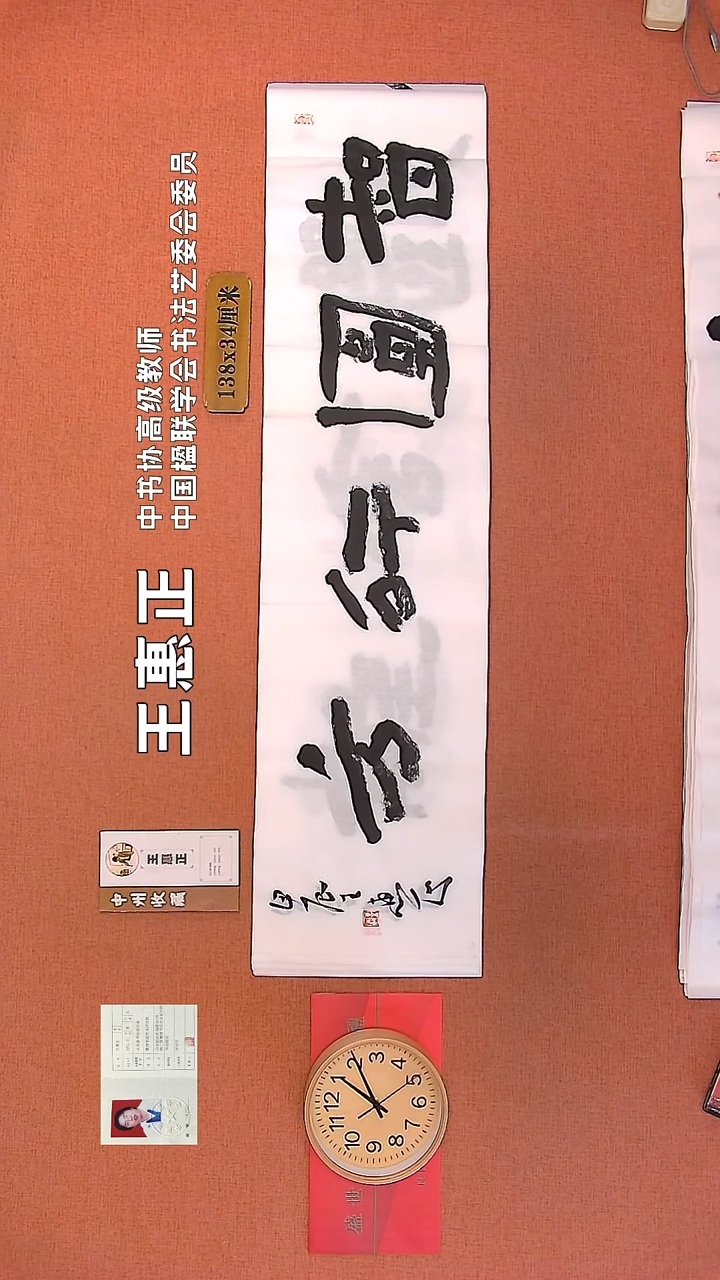 王惠正
中书协高级教师
中国楹联学会书法艺委会委员
138x34厘米
智圓行方
甲辰王惠正
王惠正
中州收藏
盛世
12
2
3
5
6
7
8
9
10
11